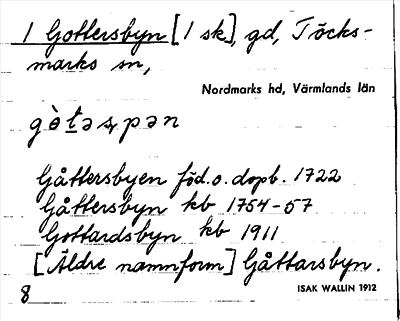 1 Gottersbyn [1 sk], gd, Töcks-
marks sn,
Nordmarks hd, Värmlands län
Gåttersbyen föd.o.dopb. 1722
Gåttersbyn kb 1754-57
Gottardsbyn kb 1911
[Äldre namnform] Gåttarsbyn.
8
ISAK WALLIN 1912